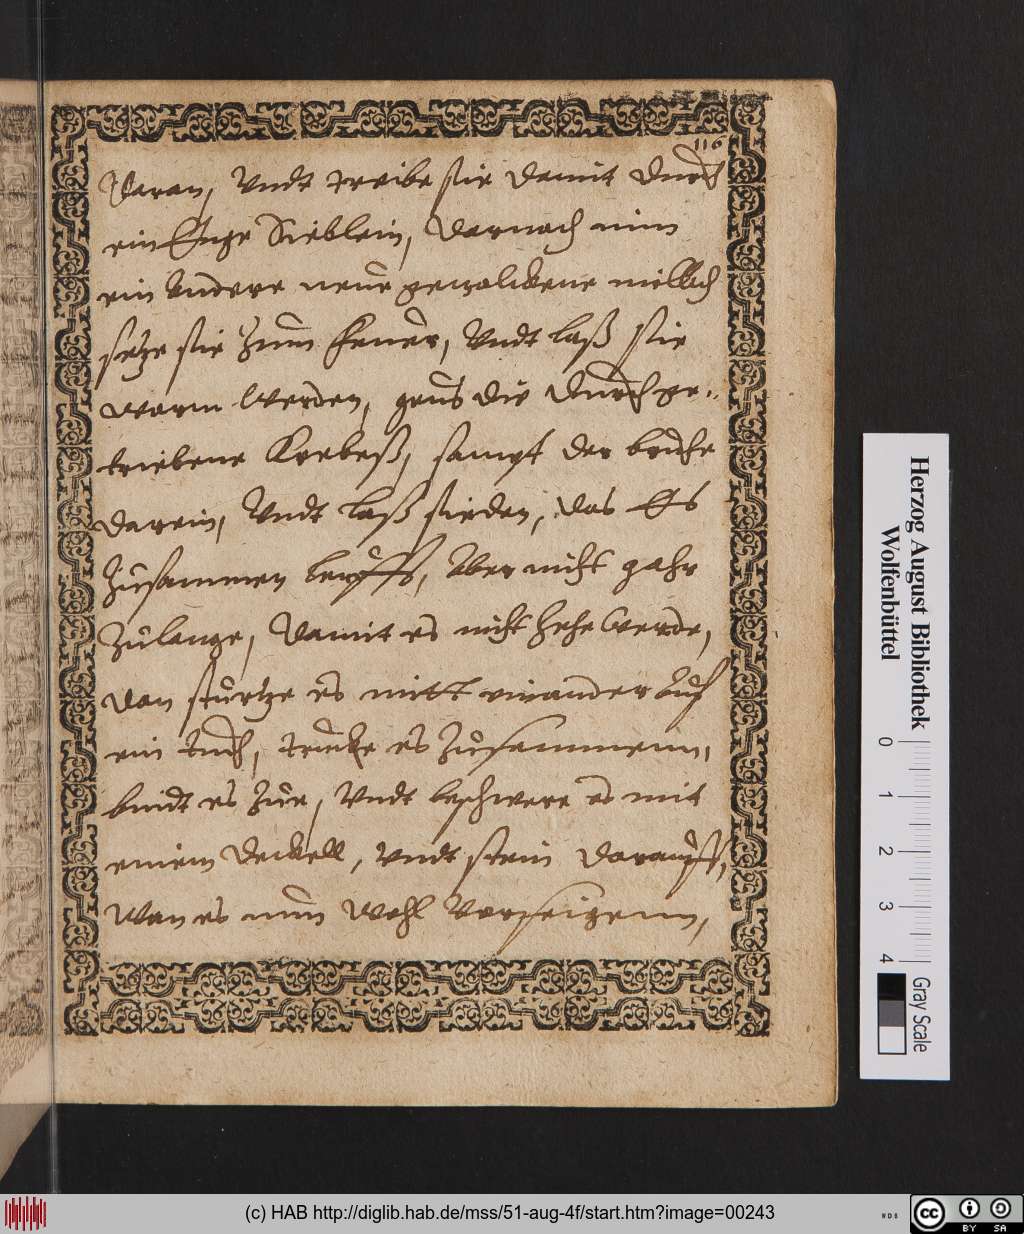 116
daran, Undt treibe sie damit durch
ein Enge Sieblein, darnach nim
ein Andere neue gemolckene millch
setze sie Zum Feuer, Undt laß sie
warm Werden, geus die durchge-
triebene Krebeß, sampt der brühe
darein, Undt laß sieden, das Es
Zusammen leufft, Aber nicht gahr
Zulange, damit es nicht hehe Werde,
dan sturtze es mitt einander Auf
ein tuch, trucke es Zusammenn,
bindt es Zue, Undt beschwere es mit
einem deckell, Undt stein darauff,
Wan es nun Wohl Verseigenn,
Herzog August Bibliothek
Wolfenbüttel
0 1 2 3 4
Gray Scale
(c) HAB http://diglib.hab.de/mss/51-aug-4f/start.htm?image=00243
WDB
cc
BY SA